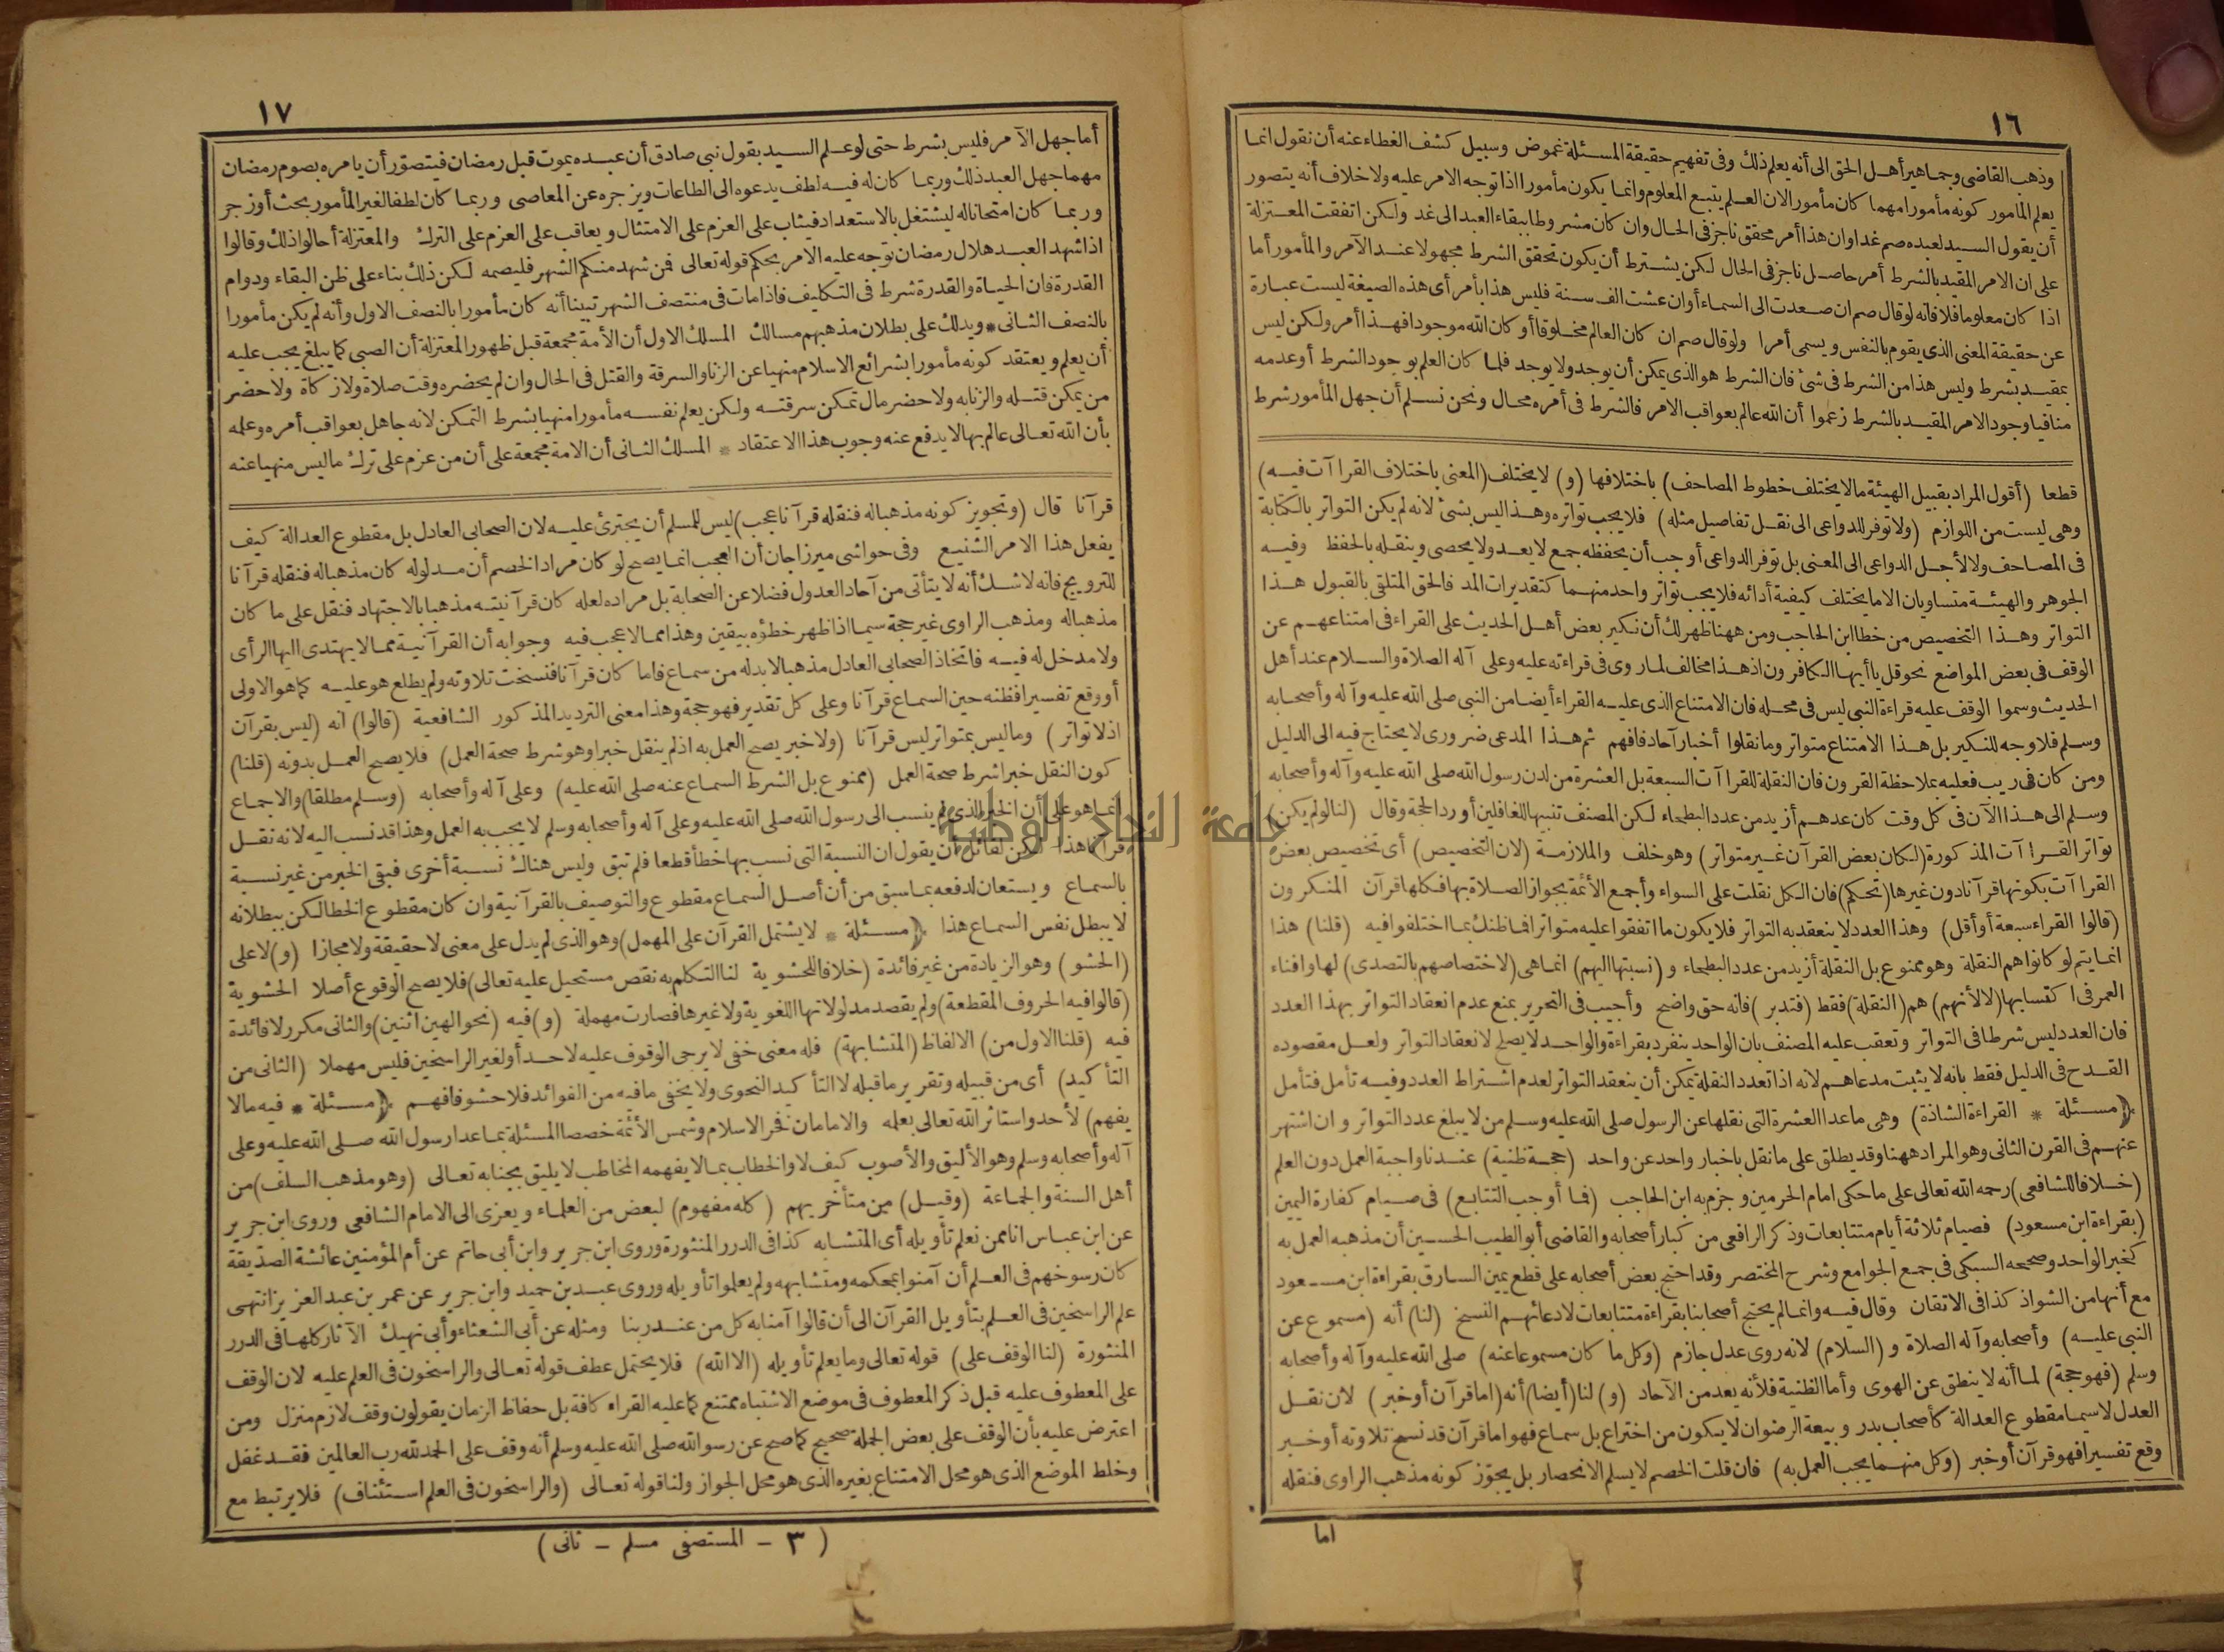 ١٦
وذهب القاضى وجماهير أهل الحق الى أنه يعلم ذلك وفى تفهيم حقيقة المسئلة غموض وسبيل كشف الغطاء عنه أن نقول انما
يعلم المأمور كونه مأمورا مهما كان مأمورا لان العلم يتبع المعلوم وانما يكون مأمورا اذا توجه الامر عليه ولا خلاف أنه يتصور
أن يقول السيد لعبده صم غدا وان هذا أمر محقق ناجز فى الحال وان كان مشروطا ببقاء العبد الى غد ولكن اتفقت المعتزلة
على ان الامر المقيد بالشرط أمر حاصل ناجز فى الحال لكن يشترط أن يكون تحقق الشرط مجهولا عند الآمر والمأمور أما
اذا كان معلوما فلا فانه لو قال صم ان صعدت الى السماء أو ان عشت الف سنة فليس هذا بأمر أى هذه الصيغة ليست عبارة
عن حقيقة المعنى الذى يقوم بالنفس ويسمى أمرا ولو قال صم ان كان العالم مخلوقا أو كان الله موجودا فهذا أمر ولكن ليس
بمقيد بشرط وليس هذا من الشرط فى شئ فان الشرط هو الذى يمكن أن يوجد ولا يوجد فلما كان العلم بوجود الشرط أو عدمه
منافيا وجود الامر المقيد بالشرط زعموا أن الله عالم بعواقب الامر فالشرط فى أمره محال ونحن نسلم أن جهل المأمور شرط
قطعا (أقول المراد بقبيل الهيئة مالا يختلف خطوط المصاحف) باختلافها (و) لا يختلف (المعنى باختلاف القراآت فيه)
وهى ليست من اللوازم (ولا توفر للدواعى الى نقل تفاصيل مثله) فلا يجب تواتره وهذا ليس بشئ لانه لم يكن التواتر بالكتابة
فى المصاحف ولا لأجل الدواعى الى المعنى بل توفر الدواعى أوجب أن يحفظه جمع لا يعد ولا يحصى وينقله بالحفظ وفيه
الجوهر والهيئة متساويان الا ما يختلف كيفية أدائه فلا يجب تواتر واحد منهما كتقديرات المد فالحق المتلقى بالقبول هذا
التواتر وهذا التخصيص من خطا ابن الحاجب ومن ههنا ظهر لك أن نكير بعض أهل الحديث على القراء فى امتناعهم عن
الوقف فى بعض المواضع نحو قل يا أيها الكافرون اذ هذا مخالف لما روى فى قراءته عليه وعلى آله الصلاة والسلام عند أهل
الحديث وسموا الوقف عليه قراءة النبى ليس فى محله فان الامتناع الذى عليه القراء أيضا من النبى صلى الله عليه وآله وأصحابه
وسلم فلا وجه للنكير بل هذا الامتناع متواتر وما نقلوا أخبار آحاد فافهم ثم هذا المدعى ضرورى لا يحتاج فيه الى الدليل
ومن كان فى ريب فعليه بملاحظة القرون فان النقلة للقراآت السبعة بل العشرة من لدن رسول الله صلى الله عليه وآله وأصحابه
وسلم الى هذا الآن فى كل وقت كان عدهم أزيد من عدد البطحاء لكن المصنف تنبيها للغافلين أورد الحجة وقال (لنا لو لم يكن)
تواتر القراآت المذكورة (لكان بعض القرآن غير متواتر) وهو خلف والملازمة (لان التخصيص) أى تخصيص بعض
القراآت بكونها قرآنا دون غيرها (تحكم) فان الكل نقلت على السواء وأجمع الأئمة بجواز الصلاة بها فكلها قرآن المنكرون
(قالوا القراء سبعة أو أقل) وهذا العدد لا ينعقد به التواتر فلا يكون ما اتفقوا عليه متواترا فما ظنك بما اختلفوا فيه (قلنا) هذا
انما يتم لو كانوا هم النقلة وهو ممنوع بل النقلة أزيد من عدد البطحاء و (نسبتها اليهم) انما هى (لاختصاصهم بالتصدى) لها وافناء
العمر فى اكتسابها (لا لأنهم) هم (النقلة) فقط (فتدبر) فانه حق واضح وأجيب فى التحرير بمنع عدم انعقاد التواتر بهذا العدد
فان العدد ليس شرطا فى التواتر وتعقب عليه المصنف بان الواحد ينفرد بقراءة والواحد لا يصلح لانعقاد التواتر ولعل مقصوده
القدح فى الدليل فقط بانه لا يثبت مدعاهم لانه اذا تعدد النقلة يمكن أن ينعقد التواتر لعدم اشتراط العدد وفيه تأمل فتأمل
﴿مسئلة * القراءة الشاذة) وهى ما عدا العشرة التى نقلها عن الرسول صلى الله عليه وسلم من لا يبلغ عدد التواتر وان اشتهر
عنهم فى القرن الثانى وهو المراد ههنا وقد يطلق على ما نقل باخبار واحد عن واحد (حجة ظنية) عندنا واجبة العمل دون العلم
(خلافا للشافعى) رحمه الله تعالى على ما حكى امام الحرمين وجزم به ابن الحاجب (فما أوجب التتابع) فى صيام كفارة اليمين
(بقراءة ابن مسعود) فصيام ثلاثة أيام متتابعات وذكر الرافعى من كبار أصحابه والقاضى أبو الطيب الحسين أن مذهبه العمل به
كخبر الواحد وصححه السبكى فى جمع الجوامع وشرح المختصر وقد احتج بعض أصحابه على قطع يمين السارق بقراءة ابن مسعود
مع أنها من الشواذ كذا فى الاتقان وقال فيه وانما لم يحتج أصحابنا بقراءة متتابعات لادعائهم النسخ (لنا) أنه (مسموع عن
النبى عليه) وأصحابه وآله الصلاة و (السلام) لانه روى عدل جازم (وكل ما كان مسموعا عنه) صلى الله عليه وآله وأصحابه
وسلم (فهو حجة) لما أنه لا ينطق عن الهوى وأما الظنية فلأنه يعد من الآحاد (و) لنا (أيضا) أنه (اما قرآن أو خبر) لان نقل
العدل لا سيما مقطوع العدالة كأصحاب بدر وبيعة الرضوان لا يكون من اختراع بل سماع فهو اما قرآن قد نسخ تلاوته أو خبر
وقع تفسيرا فهو قرآن أو خبر (وكل منهما يجب العمل به) فان قلت الخصم لا يسلم الانحصار بل يجوّز كونه مذهب الراوى فنقله
اما
١٧
أما جهل الآمر فليس بشرط حتى لو علم السيد بقول نبى صادق أن عبده يموت قبل رمضان فيتصوّر أن يامره بصوم رمضان
مهما جهل العبد ذلك وربما كان له فيه لطف يدعوه الى الطاعات ويزجره عن المعاصى وربما كان لطفا لغير المأمور بحث أو زجر
وربما كان امتحانا له ليشتغل بالاستعداد فيثاب على العزم على الامتثال ويعاقب على العزم على الترك والمعتزلة أحالوا ذلك وقالوا
اذا شهد العبد هلال رمضان توجه عليه الامر بحكم قوله تعالى فمن شهد منكم الشهر فليصمه لكن ذلك بناء على ظن البقاء ودوام
القدرة فان الحياة والقدرة شرط فى التكليف فاذا مات فى منتصف الشهر تبينا أنه كان مأمورا بالنصف الاول وأنه لم يكن مأمورا
بالنصف الثانى * ويدلك على بطلان مذهبهم مسالك المسلك الاول أن الأمة مجمعة قبل ظهور المعتزلة أن الصبى كما يبلغ يجب عليه
أن يعلم ويعتقد كونه مأمورا بشرائع الاسلام منهيا عن الزنا والسرقة والقتل فى الحال وان لم يحضره وقت صلاة ولا زكاة ولا حضر
من يمكن قتله والزنا به ولا حضر مال تمكن سرقته ولكن يعلم نفسه مأمورا منهيا بشرط التمكن لانه جاهل بعواقب أمره وعلمه
بأن الله تعالى عالم بها لا يدفع عنه وجوب هذا الاعتقاد * المسلك الثانى أن الامة مجمعة على أن من عزم على ترك ما ليس منهيا عنه
قرآنا قال (وتجويز كونه مذهبا له فنقله قرآنا عجب) ليس للمسلم أن يجترئ عليه لان الصحابى العادل بل مقطوع العدالة كيف
يفعل هذا الامر الشنيع وفى حواشى ميرزاجان أن العجب انما يصح لو كان مراد الخصم أن مدلوله كان مذهبا له فنقله قرآنا
للترويج فانه لا شك أنه لا يتأتى من آحاد العدول فضلا عن الصحابة بل مراده لعله كان قرآنيته مذهبا بالاجتهاد فنقل على ما كان
مذهبا له ومذهب الراوى غير حجة سيما اذا ظهر خطؤه بيقين وهذا مما لا عجب فيه وجوابه أن القرآنية مما لا يهتدى اليها الرأى
ولا مدخل له فيه فاتخاذ الصحابى العادل مذهبا لا بد له من سماع فاما كان قرآنا فنسخت تلاوته ولم يطلع هو عليه كما هو الاولى
أو وقع تفسيرا فظنه حين السماع قرآنا وعلى كل تقدير فهو حجة وهذا معنى الترديد المذكور الشافعية (قالوا) انه (ليس بقرآن
اذ لا تواتر) وما ليس بمتواتر ليس قرآنا (ولا خبر يصح العمل به اذ لم ينقل خبرا وهو شرط صحة العمل) فلا يصح العمل بدونه (قلنا)
كون النقل خبرا شرط صحة العمل (ممنوع بل الشرط السماع عنه صلى الله عليه) وعلى آله وأصحابه (وسلم مطلقا) والاجماع
انما هو على أن الخبر الذى لم ينسب الى رسول الله صلى الله عليه وعلى آله وأصحابه وسلم لا يجب به العمل وهذا قد نسب اليه لانه نقل
قرآنا هذا لكن لقائل أن يقول ان النسبة التى نسب بها خطأ قطعا فلم تبق وليس هناك نسبة أخرى فبقى الخبر من غير نسبة
بالسماع ويستعان لدفعه بما سبق من أن أصل السماع مقطوع والتوصيف بالقرآنية وان كان مقطوع الخطا لكن ببطلانه
لا يبطل نفس السماع هذا ﴿مسئلة * لا يشتمل القرآن على المهمل) وهو الذى لم يدل على معنى لا حقيقة ولا مجازا (و) لا على
(الحشو) وهو الزيادة من غير فائدة (خلافا للحشوية لنا التكلم به نقص مستحيل عليه تعالى) فلا يصح الوقوع أصلا الحشوية
(قالوا فيه الحروف المقطعة) ولم يقصد مدلولاتها اللغوية ولا غيرها فصارت مهملة (و) فيه (نحو الهين اثنين) والثانى مكرر لا فائدة
فيه (قلنا الاول من) الالفاظ (المتشابهة) فله معنى خفى لا يرجى الوقوف عليه لاحد أو لغير الراسخين فليس مهملا (الثانى من
التأكيد) أى من قبيله وتقرير ما قبله لا التأكيد النحوى ولا يخفى ما فيه من الفوائد فلا حشو فافهم ﴿مسئلة * فيه مالا
يفهم) لأحد واستاثر الله تعالى بعلمه والامامان فخر الاسلام وشمس الأئمة خصصا المسئلة بما عدا رسول الله صلى الله عليه وعلى
آله وأصحابه وسلم وهو الأليق والأصوب كيف لا والخطاب بما لا يفهمه المخاطب لا يليق بجنابه تعالى (وهو مذهب السلف) من
أهل السنة والجماعة (وقيل) من متأخريهم (كله مفهوم) لبعض من العلماء ويعزى الى الامام الشافعى وروى ابن جرير
عن ابن عباس انا ممن نعلم تأويله أى المتشابه كذا فى الدرر المنثورة وروى ابن جرير وابن أبى حاتم عن أم المؤمنين عائشة الصدّيقة
كان رسوخهم فى العلم أن آمنوا بمحكمه ومتشابهه ولم يعلموا تأويله وروى عبد بن حميد وابن جرير عن عمر بن عبد العزيز انتهى
علم الراسخين فى العلم بتأويل القرآن الى أن قالوا آمنا به كل من عند ربنا ومثله عن أبى الشعثاء وأبى نهيك الآثار كلها فى الدرر
المنثورة (لنا الوقف على) قوله تعالى وما يعلم تأويله (الا الله) فلا يحتمل عطف قوله تعالى والراسخون فى العلم عليه لان الوقف
على المعطوف عليه قبل ذكر المعطوف فى موضع الاشتباه ممتنع كما عليه القراء كافة بل حفاظ الزمان يقولون وقف لازم منزل ومن
اعترض عليه بأن الوقف على بعض الجملة صحيح كما صح عن رسول الله صلى الله عليه وسلم أنه وقف على الحمد لله رب العالمين فقد غفل
وخلط الموضع الذى هو محل الامتناع بغيره الذى هو محل الجواز ولنا قوله تعالى (والراسخون فى العلم استئناف) فلا يرتبط مع
(٣ - المستصفى مسلم - ثانى)
جامعة النجاح الوطنية